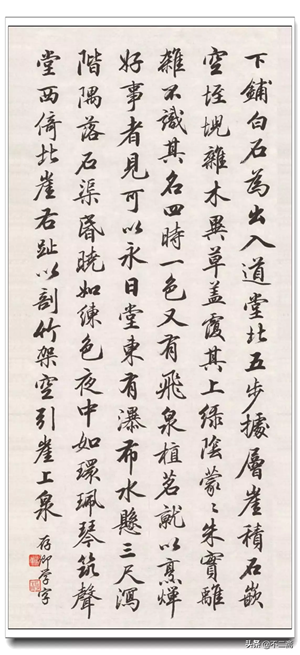 下鋪白石為出入道堂北五步據層崖積石嵌
空垤堄雜木異草盖覆其上綠陰蒙〻朱實離
雜不識其名四時一色又有飛泉植茗就以烹燀
好事者見可以永日堂東有瀑布水懸三尺瀉
階隅落石渠昏曉如練色夜中如環珮琴筑聲
堂西倚北崖右趾以剖竹架空引崖上泉
存卯学字
头条@不二斋